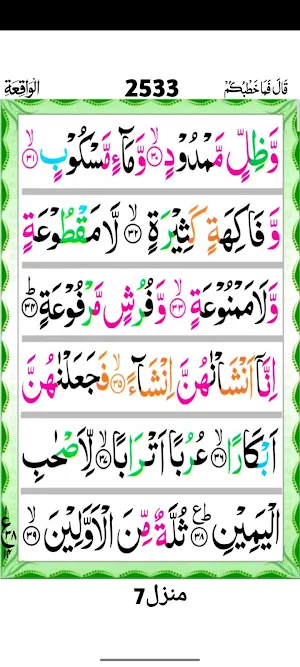 الواقعة 2533 قال فما خطبكم
وَّظِلٍّ مَّمْدُوْدٍ ۙ‏﴿۳۰﴾ وَّمَآءٍ مَّسْكُوْبٍ ۙ‏﴿۳۱﴾
وَّفَاكِهَةٍ كَثِيْرَةٍ ۙ‏﴿۳۲﴾ لَّا مَقْطُوْعَةٍ
وَّلَا مَمْنُوْعَةٍ ۙ‏﴿۳۳﴾ وَّفُرُشٍ مَّرْفُوْعَةٍ ؕ‏﴿۳۴﴾
اِنَّاۤ اَنْشَاْنٰهُنَّ اِنْشَآءً ۙ‏﴿۳۵﴾ فَجَعَلْنٰهُنَّ
اَبْكَارًا ۙ‏﴿۳۶﴾ عُرُبًا اَتْرَابًا ۙ‏﴿۳۷﴾ لِّاَصْحٰبِ
الْيَمِيْنِ ؕ‏﴿۳۸﴾ ثُلَّةٌ مِّنَ الْاَوَّلِيْنَ ۙ‏﴿۳۹﴾
منزل 7